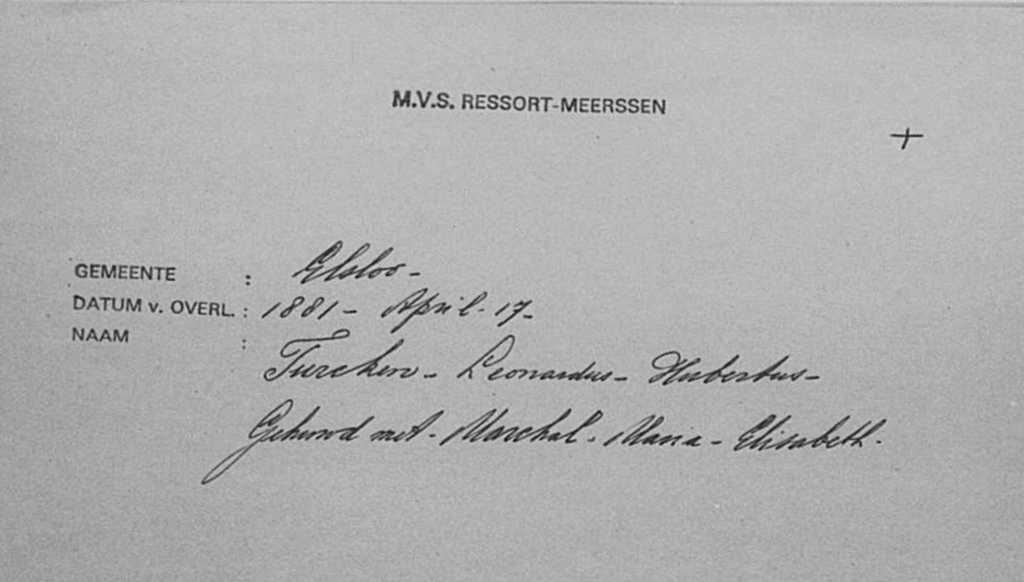 M.V.S. RESSORT-MEERSSEN
+
GEMEENTE : Elsloo-
DATUM v. OVERL. : 1881- April. 17-
NAAM :
Turcken- Leonardus- Hubertus-
Gehuwd met- Marchal- Maria- Elisabeth.